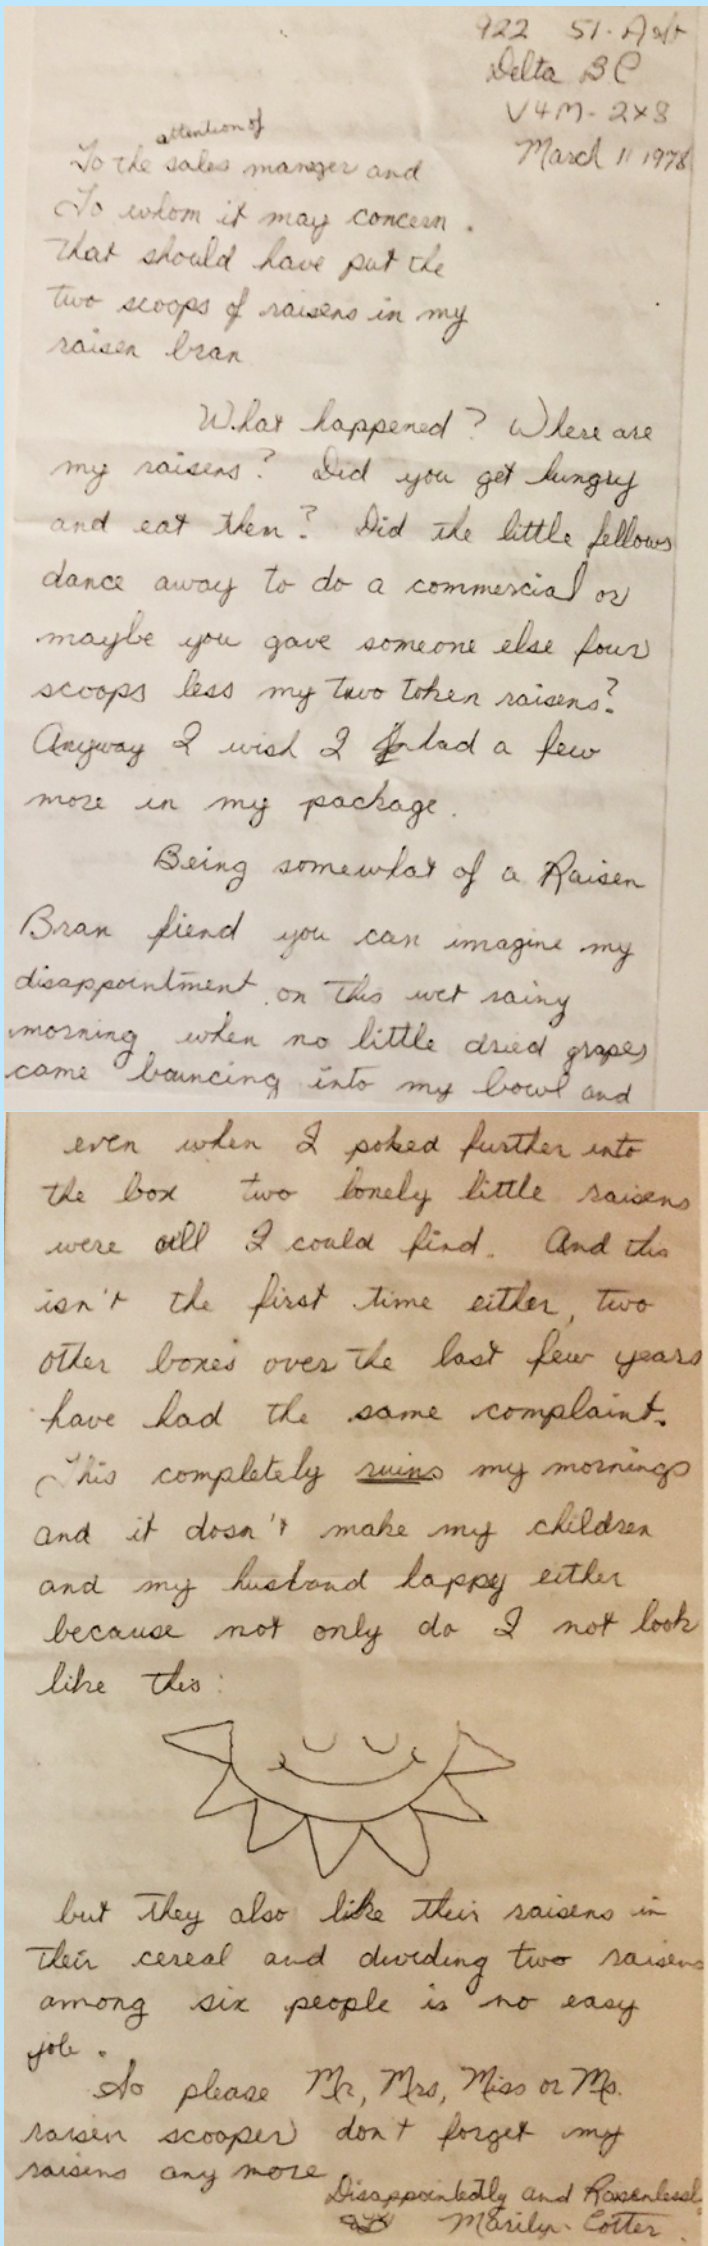 922 51. A St
Delta BC
V4M-2X8
March 11 1978
attention of
To the sales manger and
To whom it may concern.
That should have put the
two scoops of raisens in my
raisen bran
What happened? Where are
my raisens? Did you get hungry
and eat them? Did the little fellows
dance away to do a commercial or
maybe you gave someone else four
scoops less my two token raisens?
Anyway I wish I had a few
more in my package.
Being somewhat of a Raisen
Bran fiend you can imagine my
disappointment on this wet rainy
morning when no little dried grapes
came bouncing into my bowl and
even when I poked further into
the box two lonely little raisens
were all I could find. And this
isn't the first time either, two
other boxes over the last few years
have had the same complaint.
This completely ruins my mornings
and it dosn't make my children
and my husband happy either
because not only do I not look
like this:
but they also like their raisens in
their cereal and dividing two raisens
among six people is no easy
job.
So please Mr, Mrs, Miss or Ms.
raisen scooper don't forget my
raisens any more
Disappointedly and Raisenlessly
Marilyn Cotter.